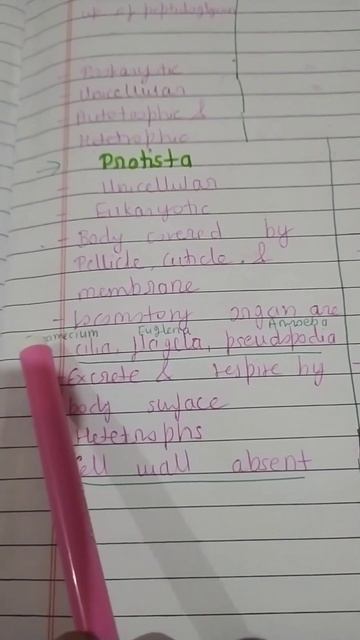 up of peptidoglycan
Prokaryotic
Unicellular
Autotrophic &
Hetrophic
Protista
- Unicellular
- Eukaryotic
- Body covered by
Pellicle, cuticle &
membrane
- Locomotory organ are
Euglena Amoeba
cilia, flagela, pseudopodia
- Excrete & respire by
body surface
Hetetrophs
cell wall absent